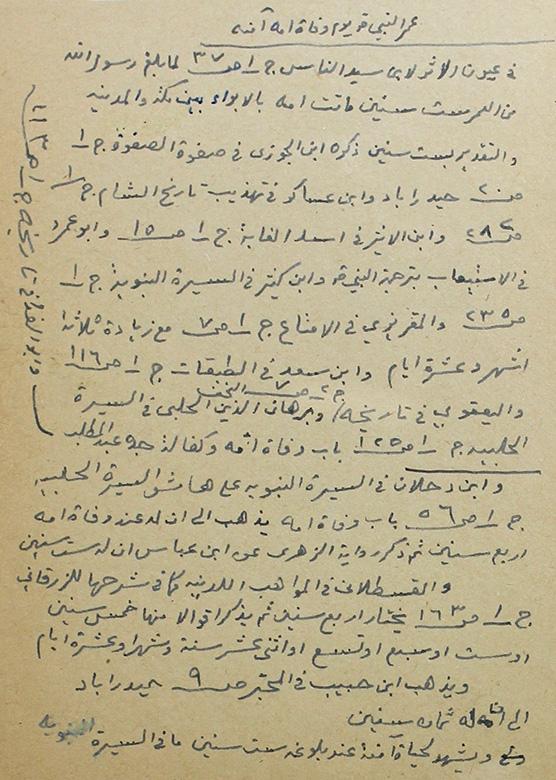 عمر النبي ص يوم وفاة امه آمنه
في عيون الاثر لابن سيد الناس ج ١ ص ٣٧ لما بلغ رسول الله
من العمر ست سنين ماتت امه بالابواء بين مكة والمدينه
والتقدير بست سنين ذكره ابن الجوزي في صفوة الصفوة ج ١
ص ٢٠ حيدر اباد وابن عساكر في تهذيب تاريخ الشام ج ١
ص ٢٨٢ وابن الاثير في اسد الغابة ج ١ ص ١٥ وابو عمر
في الاستيعاب بترجمة النبي ص وابن كثير في السيرة النبوية ج ١
ص ٢٣٥ والمقريزي في الامتاع ج ١ ص ٧ مع زيادة ثلاثة
اشهر وعشرة ايام وابن سعد في الطبقات ج ١ ص ١١٦
واليعقوبي في تاريخه ج ٢ ص ٧ النجف وبرهان الدين الحلبي في السيرة
الحلبيه ج ١ ص ١٢٥ باب وفاة امه وكفالة جده عبد المطلب
وابو الفداء في تاريخه ج ١ ص ١١٣
وابن دحلان في السيرة النبويه على هامش السيرة الحلبيه
ج ١ ص ٥٦ باب وفاة امه يذهب الى ان له عند وفاة امه
اربع سنين ثم ذكر رواية الزهري عن ابن عباس ان له ست سنين
والقسطلاني في المواهب اللدنيه كما في شرحها للزرقاني
ج ١ ص ١٦٣ يختار اربع سنين ثم يذكر اقوالا منها خمس سنين
او ست او سبع او تسع او اثنتي عشر سنة وشهرا وعشرة ايام
ويذهب ابن حبيب في المحبر ص ٩ حيدر اباد
الى ان له ثمان سنين
ويشهد لحياة آمنة عند بلوغه ست سنين ما في السيرة النبويه